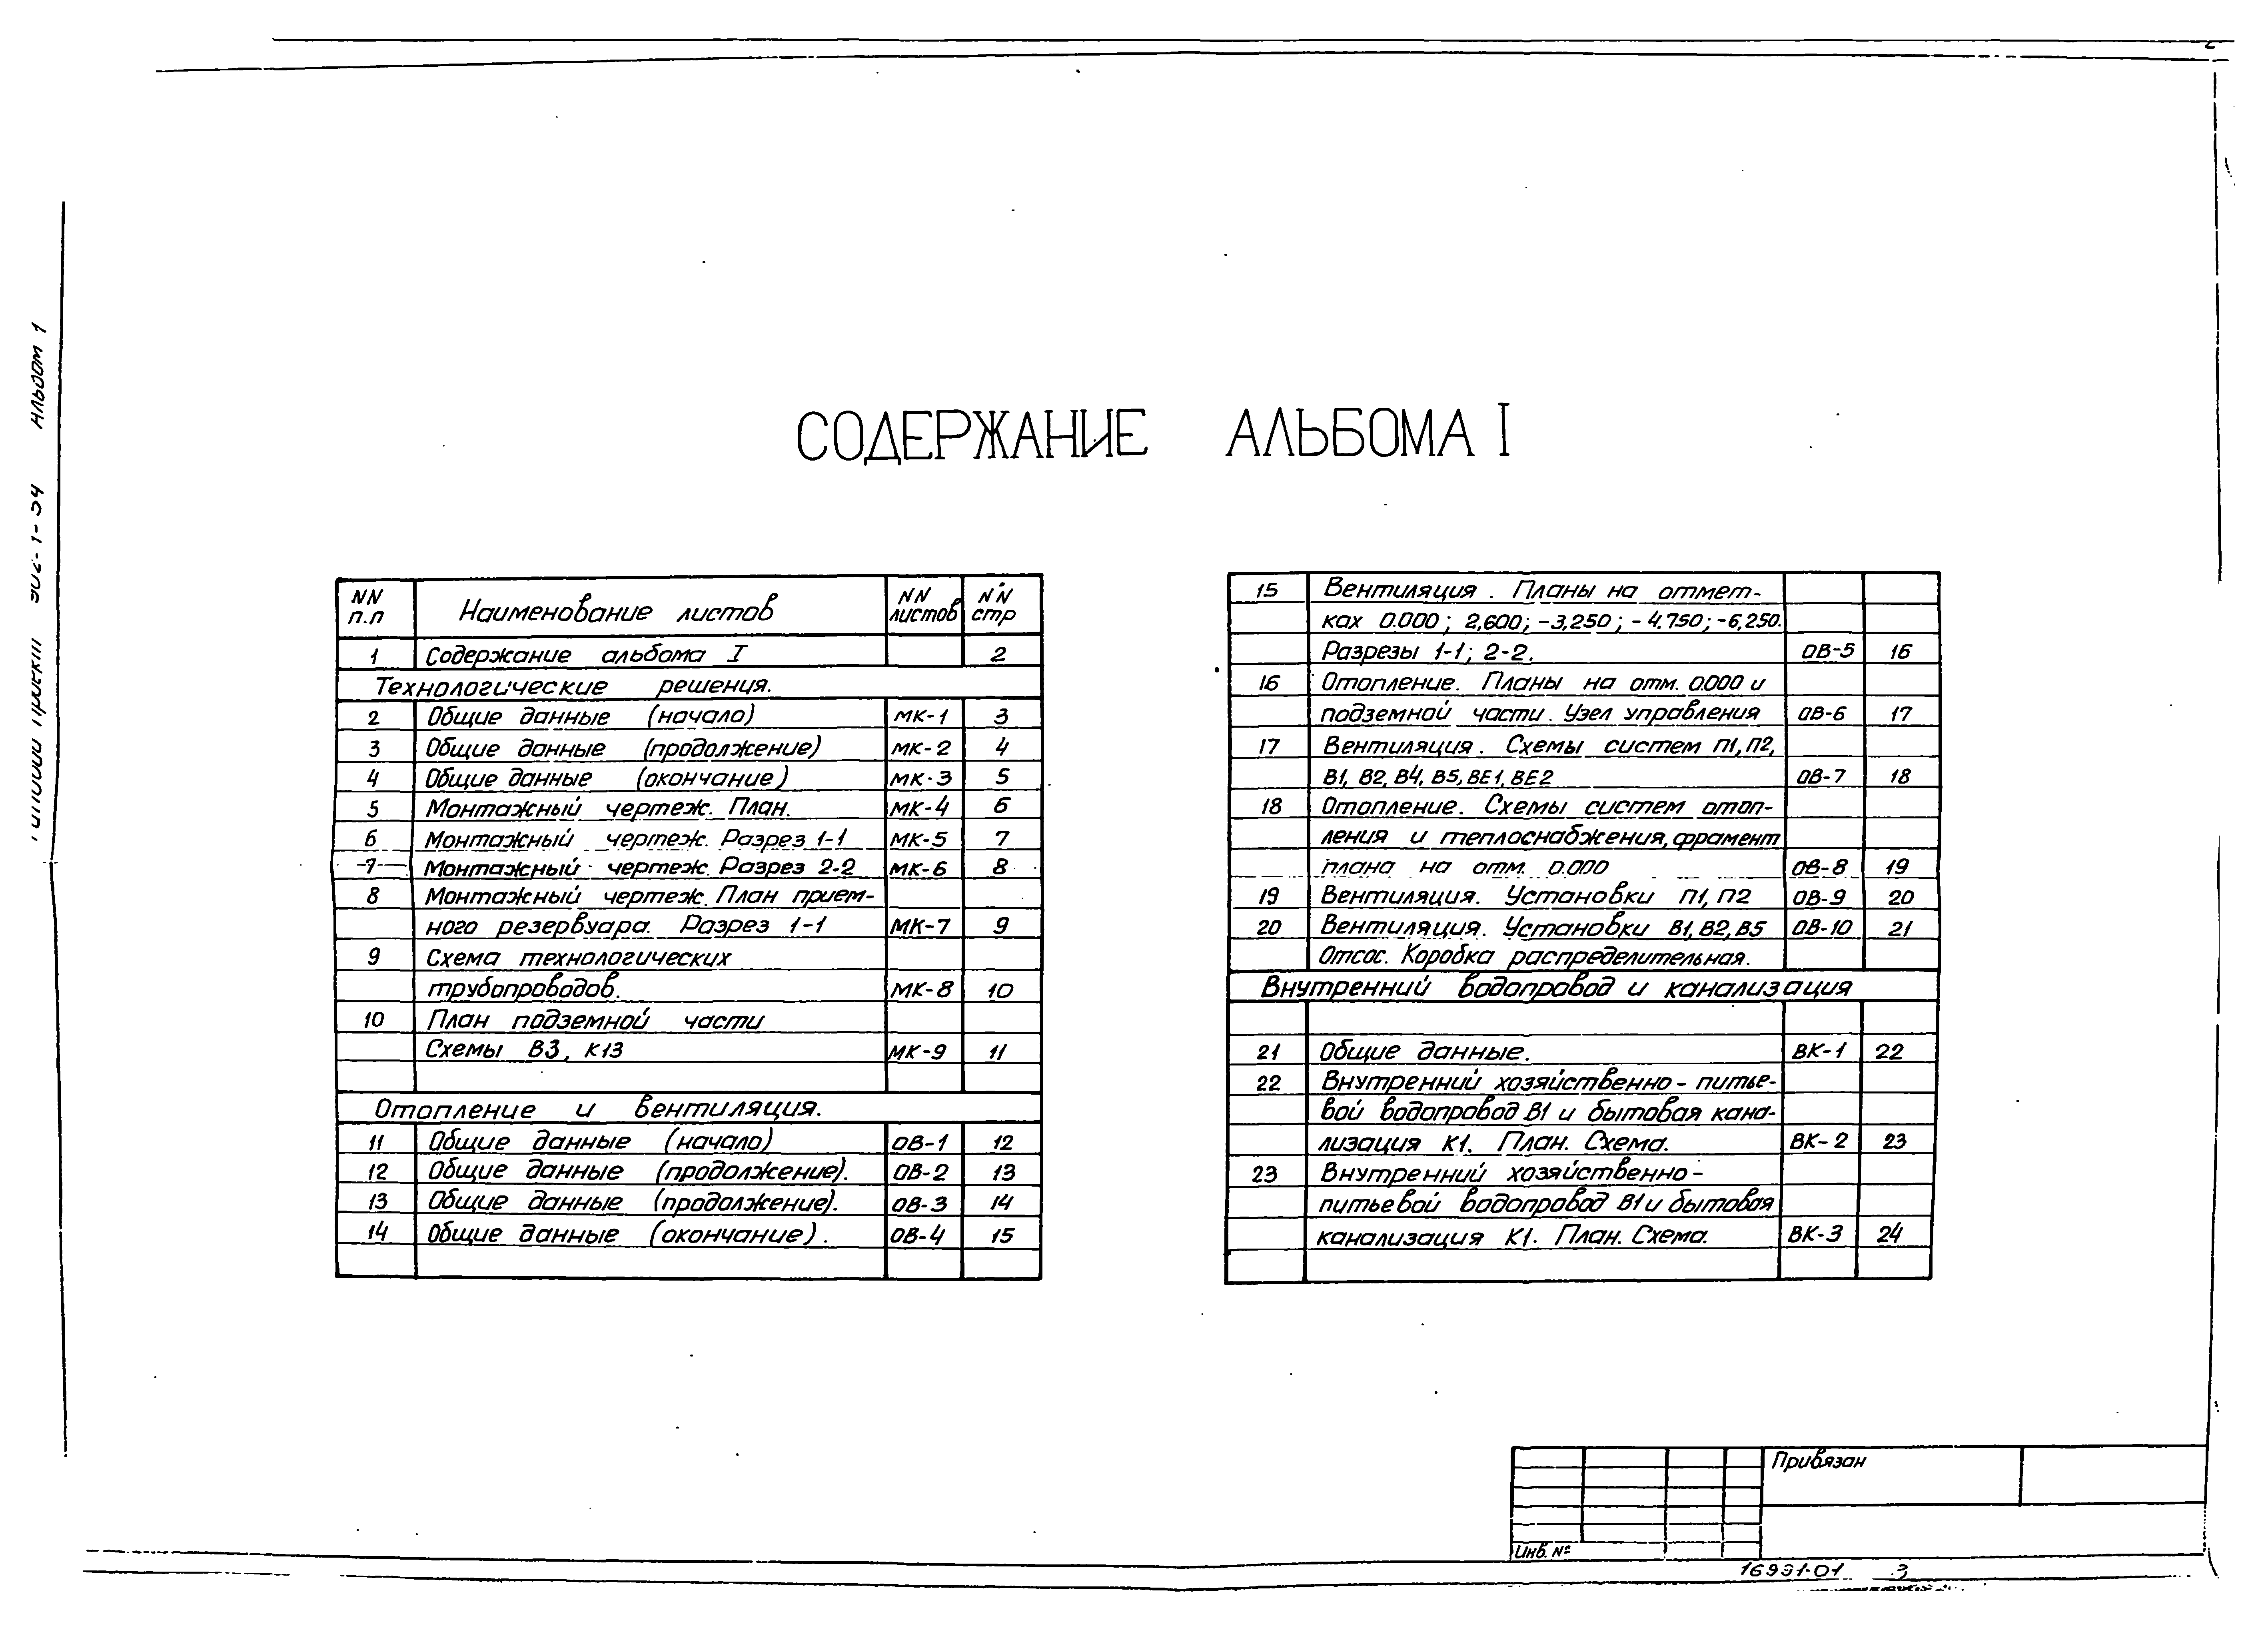 Альбом 1
СОДЕРЖАНИЕ АЛЬБОМА I
NN п.п Наименование листов NN листов NN стр
1 Содержание альбома I 2
Технологические решения.
2 Общие данные (начало) МК-1 3
3 Общие данные (продолжение) МК-2 4
4 Общие данные (окончание) МК-3 5
5 Монтажный чертеж. План. МК-4 6
6 Монтажный чертеж. Разрез 1-1 МК-5 7
7 Монтажный чертеж. Разрез 2-2 МК-6 8
8 Монтажный чертеж. План прием-
ного резервуара. Разрез 1-1 МК-7 9
9 Схема технологических
трубопроводов. МК-8 10
10 План подземной части
Схемы В3, К13 МК-9 11
Отопление и вентиляция.
11 Общие данные (начало) ОВ-1 12
12 Общие данные (продолжение). ОВ-2 13
13 Общие данные (продолжение). ОВ-3 14
14 Общие данные (окончание). ОВ-4 15
15 Вентиляция. Планы на отмет-
ках 0.000; 2,600; -3,250; -4.750; -6,250.
Разрезы 1-1; 2-2. ОВ-5 16
16 Отопление. Планы на отм. 0.000 и
подземной части. Узел управления ОВ-6 17
17 Вентиляция. Схемы систем П1, П2,
В1, В2, В4, В5, ВЕ1, ВЕ2 ОВ-7 18
18 Отопление. Схемы систем отоп-
ления и теплоснабжения, фрамент
плана на отм. 0.000 ОВ-8 19
19 Вентиляция. Установки П1, П2 ОВ-9 20
20 Вентиляция. Установки В1, В2, В5 ОВ-10 21
Отсос. Коробка распределительная.
Внутренний водопровод и канализация
21 Общие данные. ВК-1 22
22 Внутренний хозяйственно-питье-
вой водопровод В1 и бытовая кана-
лизация К1. План. Схема. ВК-2 23
23 Внутренний хозяйственно-
питьевой водопровод В1 и бытовая
канализация К1. План. Схема. ВК-3 24
Привязан
Инв. №
16991-01 3